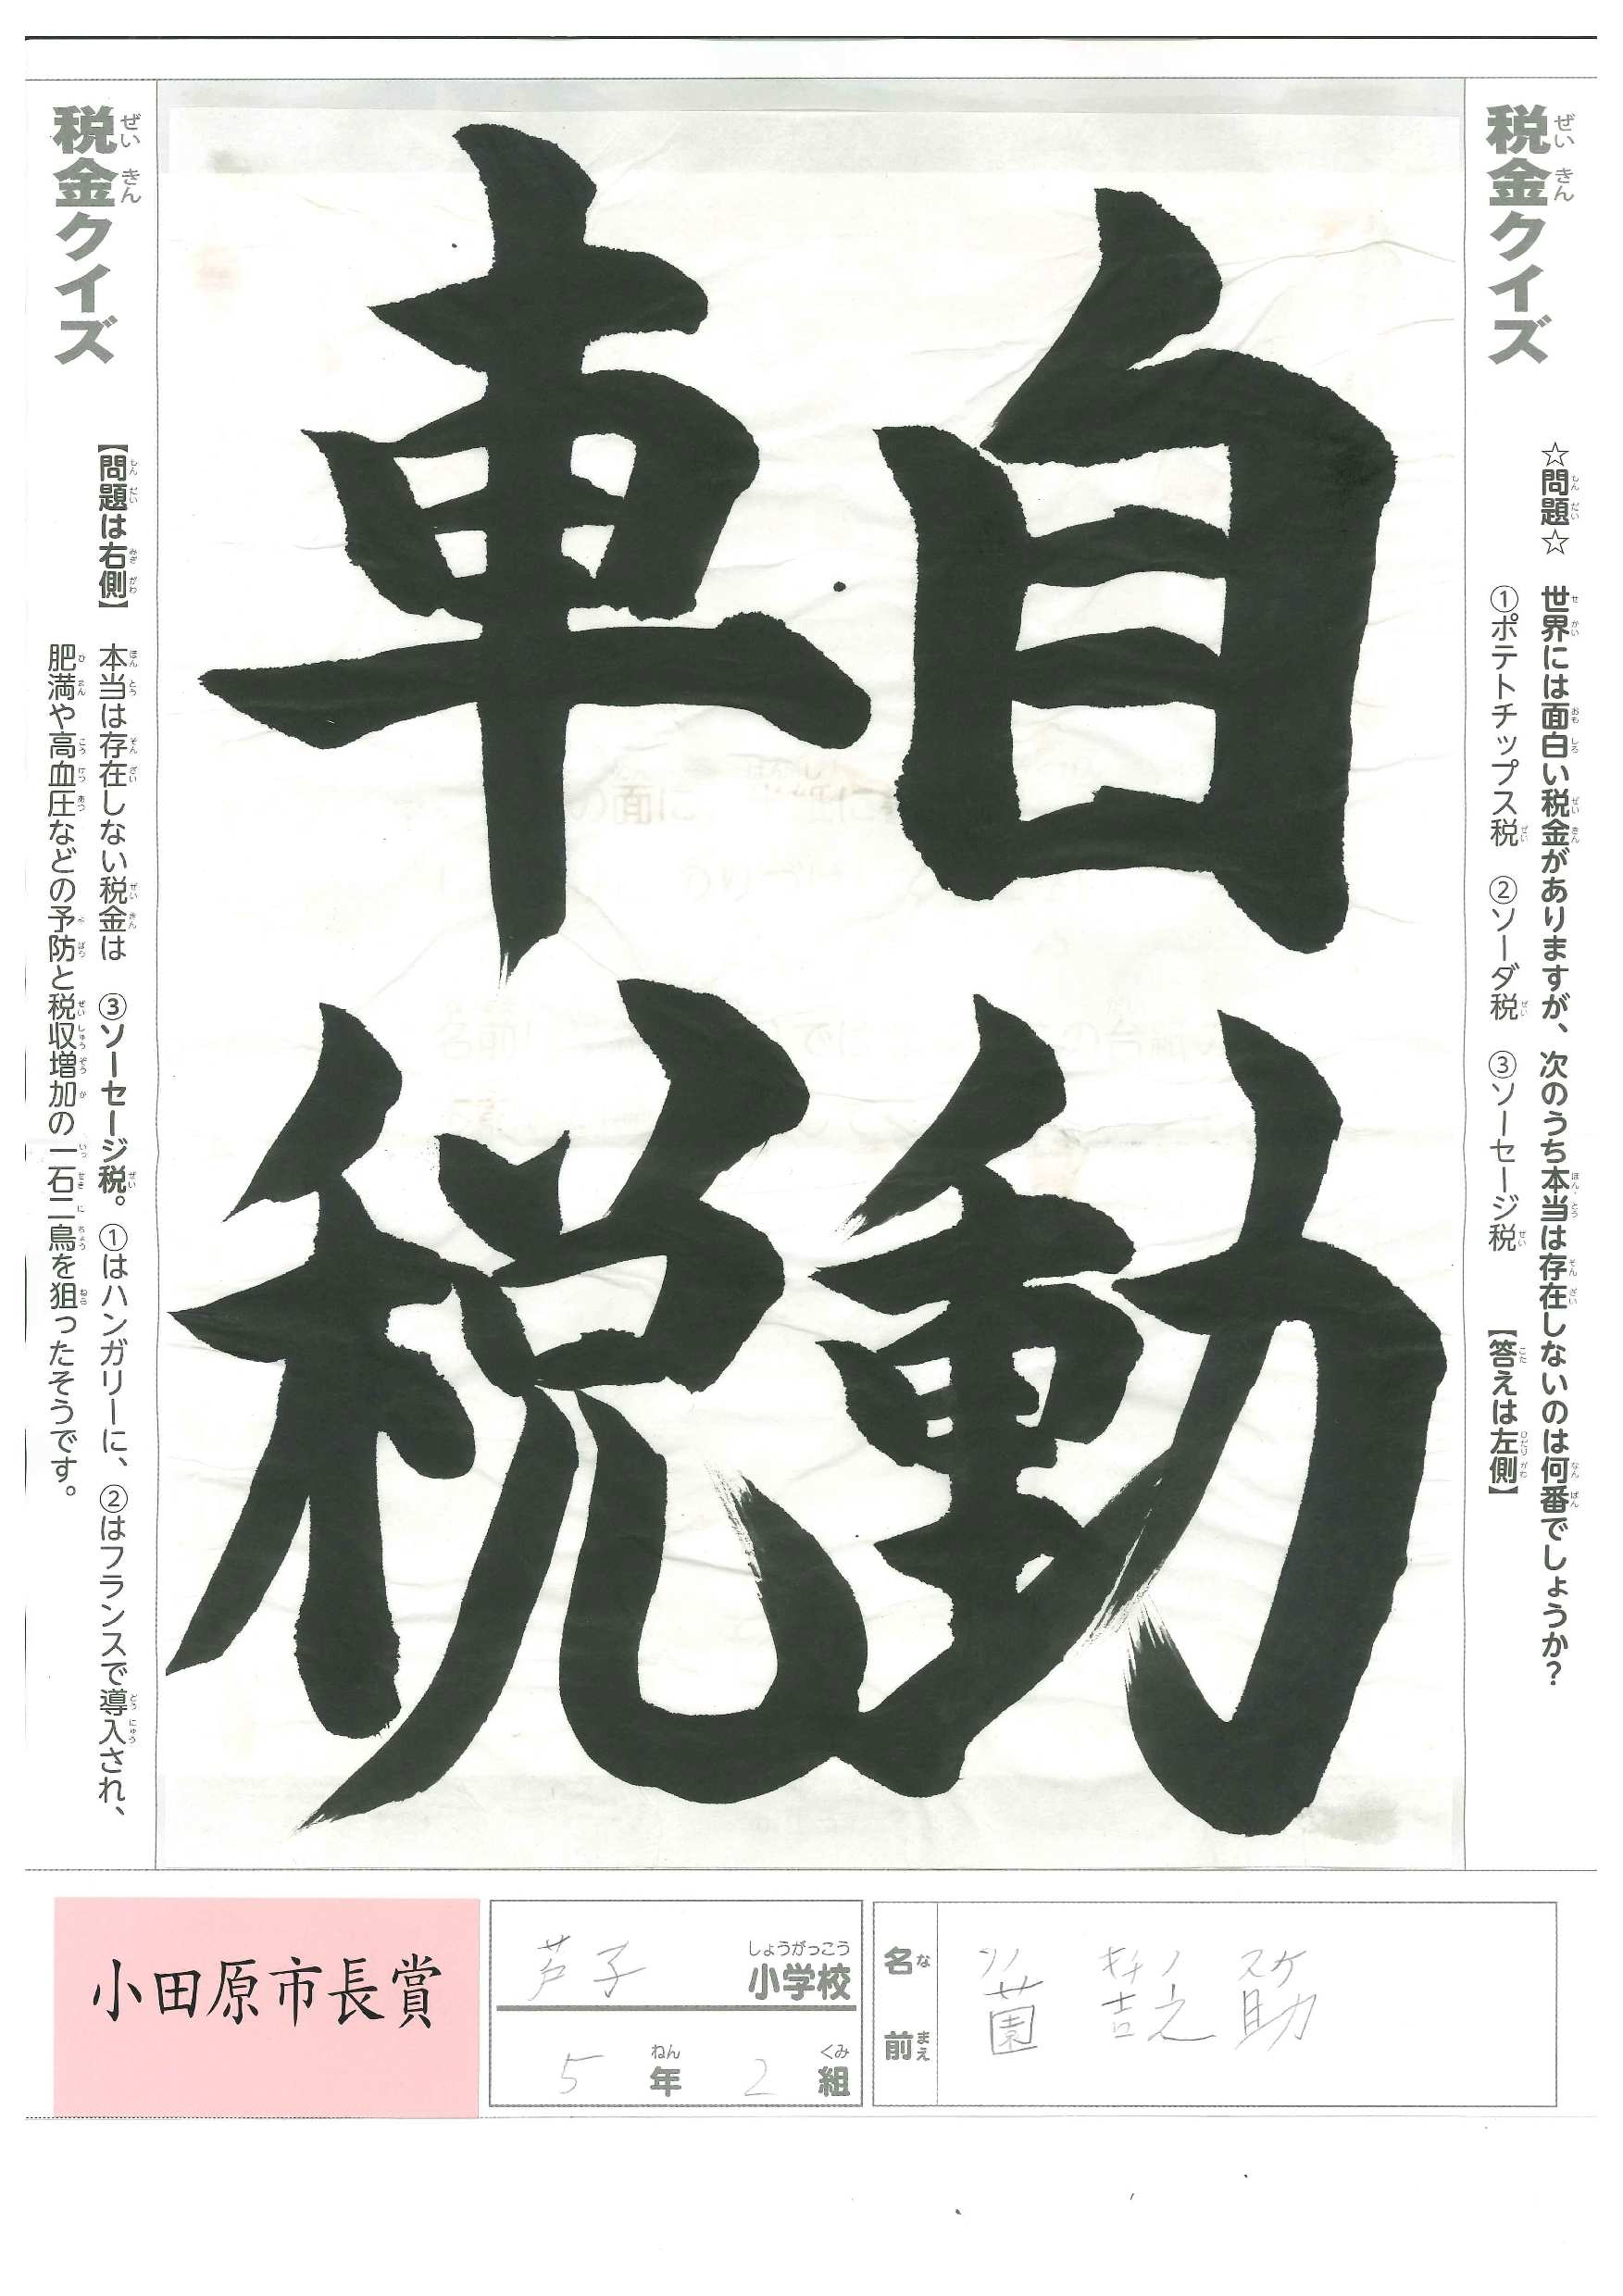 税金クイズ
☆問題☆ 世界には面白い税金がありますが、次のうち本当は存在しないのは何番でしょうか？
①ポテトチップス税 ②ソーダ税 ③ソーセージ税 【答えは左側】
自動
車税
税金クイズ
【問題は右側】 本当は存在しない税金は ③ソーセージ税。①はハンガリーに、②はフランスで導入され、
肥満や高血圧などの予防と税収増加の一石二鳥を狙ったそうです。
小田原市長賞
芦子 小学校
5年 2組
名前 薗 吉之助
ソノ キチノ スケ